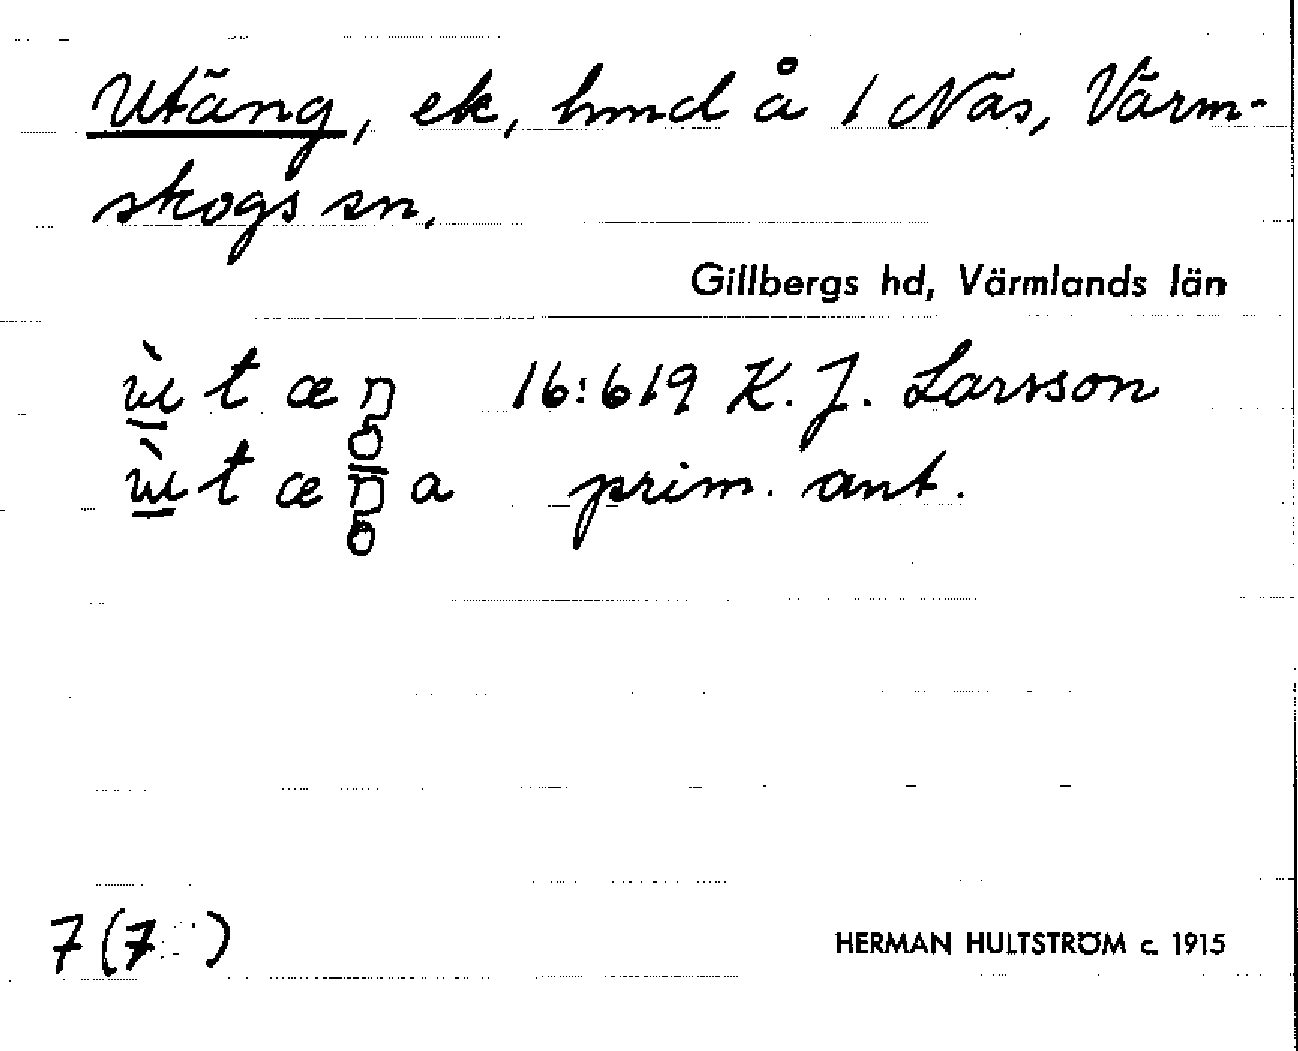 Utäng, ek, hmd å 1 Näs, Värm-
skogs sn.
Gillbergs hd, Värmlands län
ɯ̀tæŋ 16:619 K. J. Larsson
ɯ̀tæŋa prim. ant.
7 (7 )
HERMAN HULTSTRÖM c. 1915